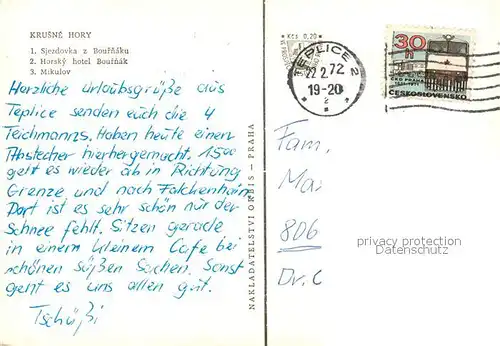 KRUŠNÉ HORY
1. Sjezdovka z Bouřňáku
2. Horský hotel Bouřňák
3. Mikulov
Herzliche Urlaubsgrüße aus
Teplice senden euch die 4
Teichmanns. Haben heute einen
Abstecher hierhergemacht. 15⁰⁰
geht es wieder ab in Richtung
Grenze und nach Falkenhain
Dort ist es sehr schön nur der
Schnee fehlt. Sitzen gerade
in einem kleinem Cafe bei
schönen süßen Sachen. Sonst
geht es uns allen gut.
Tschüßi
NAKLADATELSTVÍ ORBIS - PRAHA
Kčs 0,20
TEPLICE 2
22.2.72
19-20
2
30
H
ČESKOSLOVENSKO
Fam.
Mai
806
Dr. C
privacy protection
Datenschutz